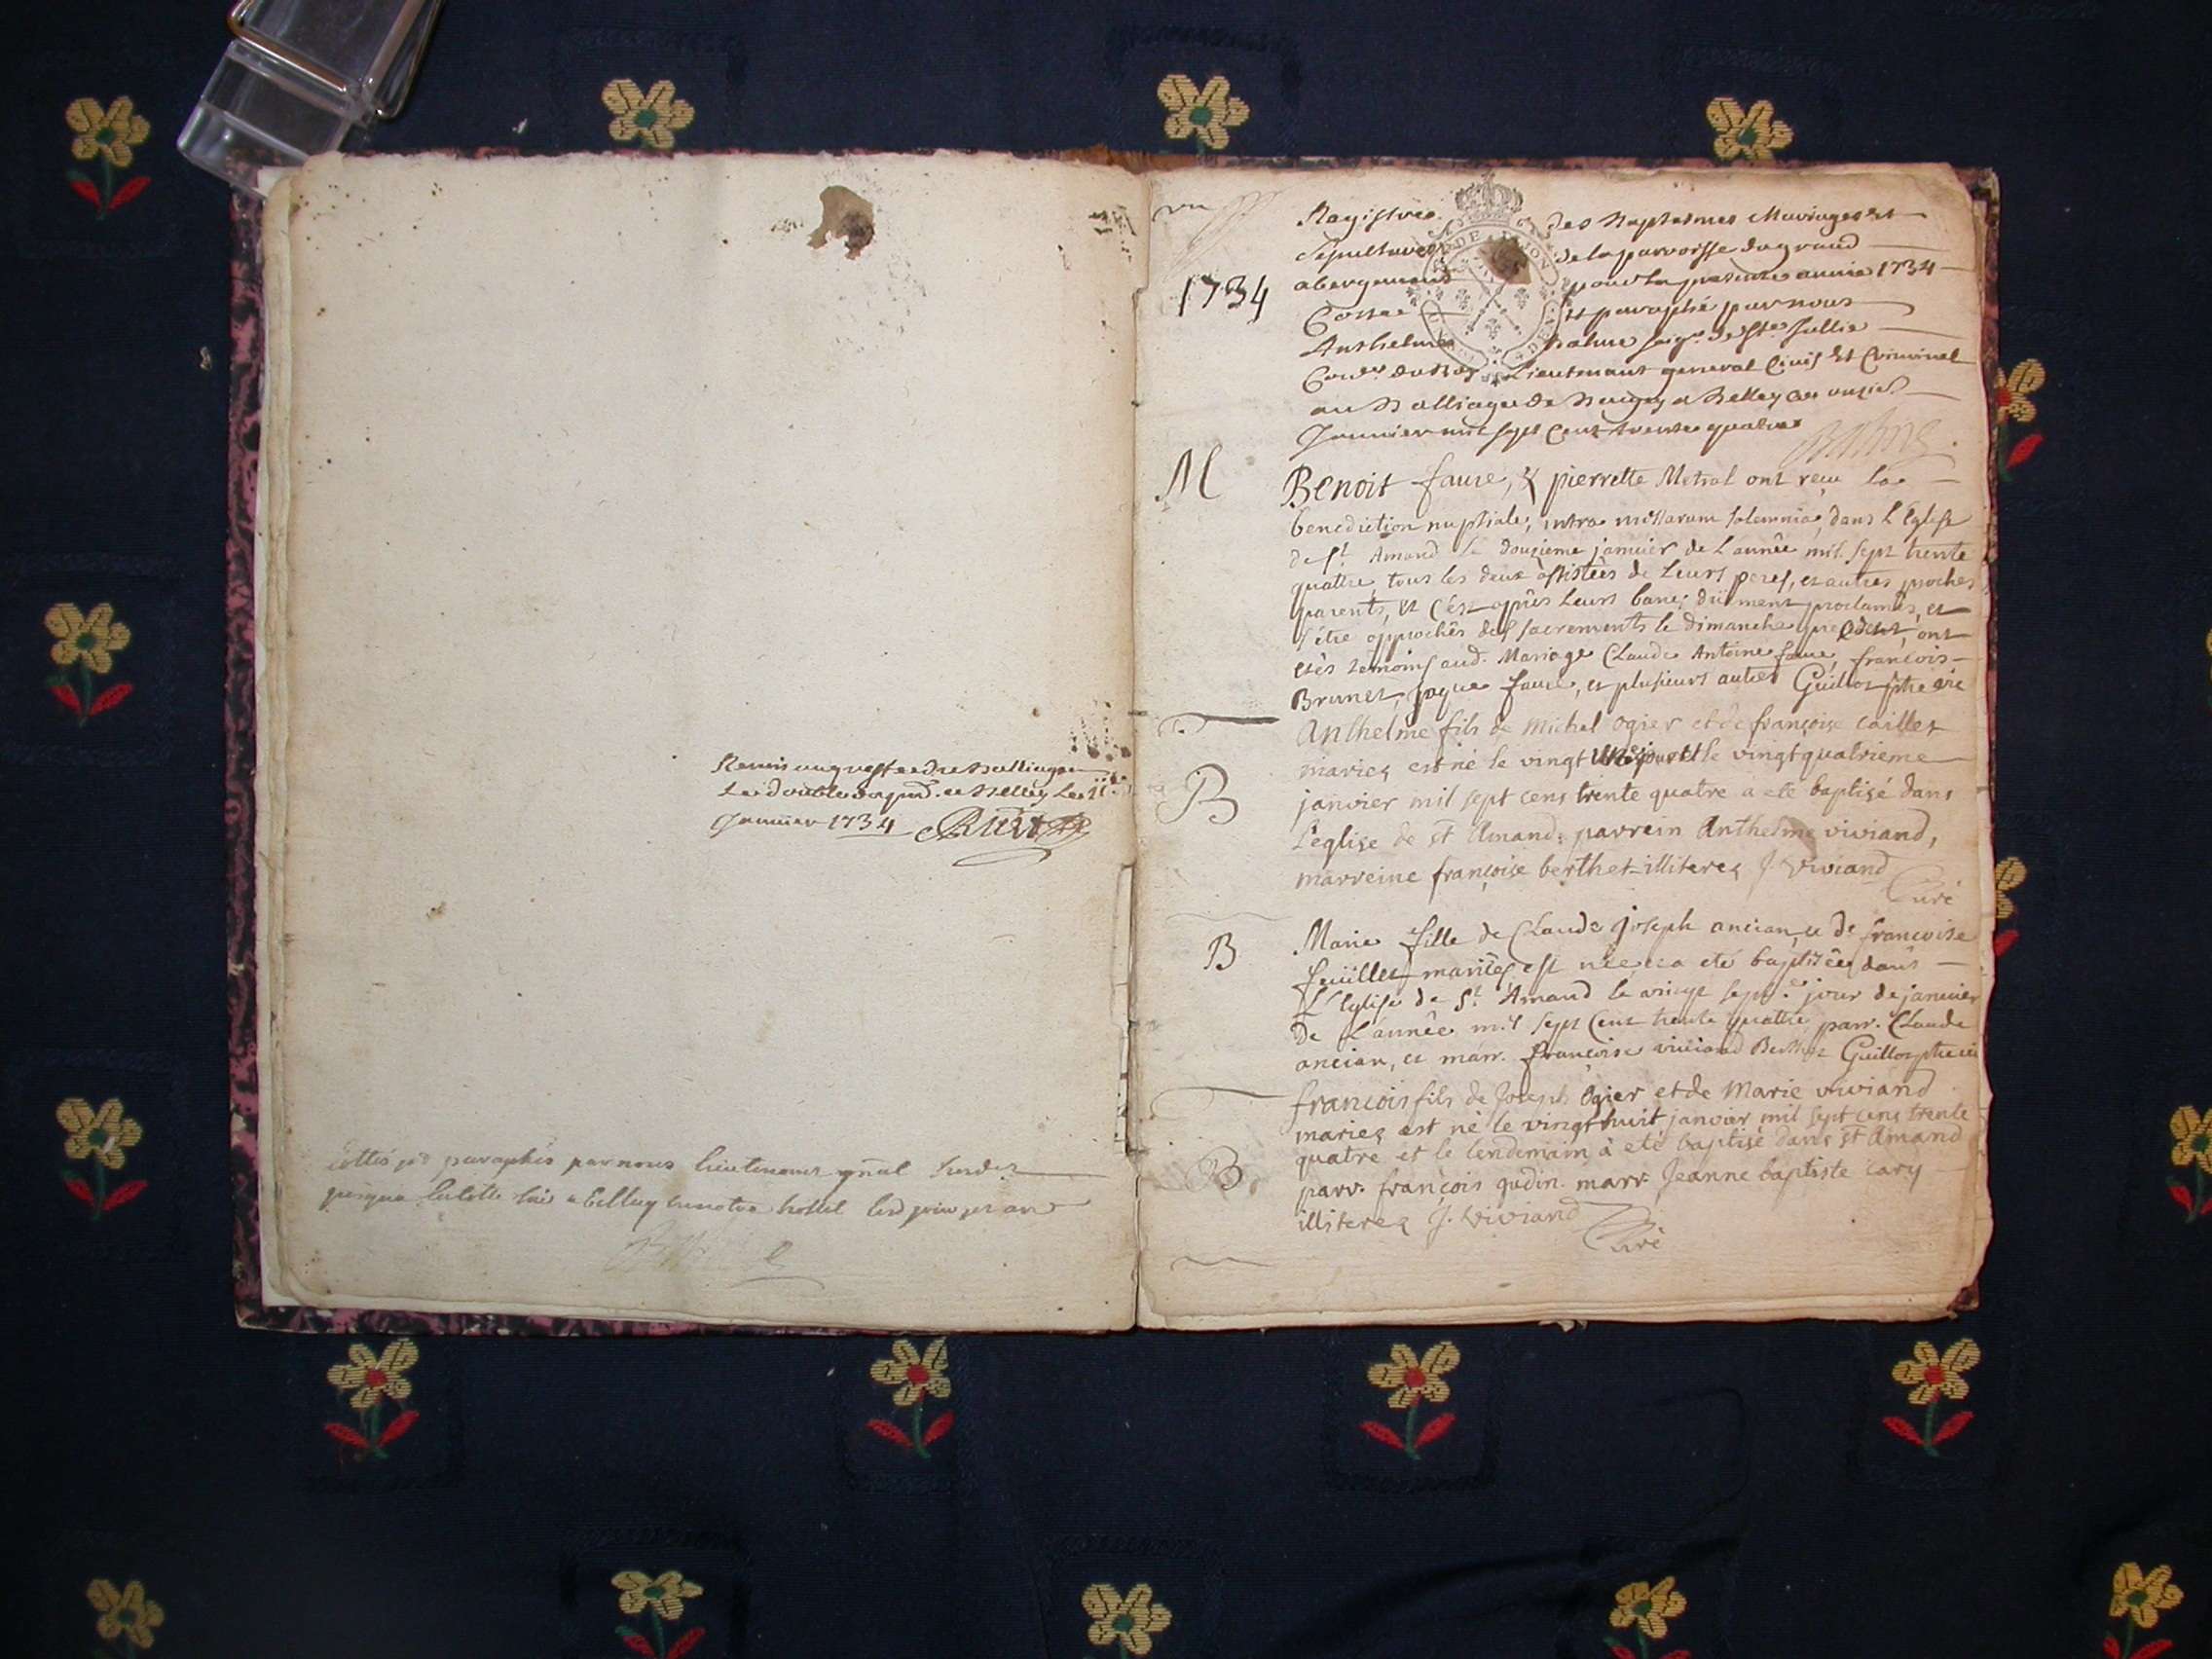 Remis au greffe du Balliage
Le double du pnt. a Belley Le 11e
Janvier 1734
cottés et paraphés par nous lieutenant gñal
jusqua a Belley en notre hostel
un
1734
Registre des Baptesmes Mariages et
Sepultures de la parroisse du grand
abergement pour la presente année 1734
Cotté et paraphé par nous
Anthelme Balme seigr. de Ste Jullie
Coner. du Roy Lieutenant general Civil et Criminel
au Balliage de Beugey a Belley ce onzie
Janvier mil sept cent trente quatre
Balme
M
Benoit faure, & pierrette Metral ont reçu la
benediction nuptiale, intra missarum solemnia, dans L'Eglise
de St. Amand le douzieme janvier de L'année mil sept trente
quattre, tous les deux assistées de Leurs peres, et autres proches
parents, et c'est après Leurs bancs düement proclamés, et
s'être approchés des sacrements le dimanche precedent, ont
etés temoins aud. Mariage Claude Antoine faure, francois
Brunet, jaque faure, et plusieurs autres Guillot ptre vic
B
Anthelme fils de Michel ogier et de françoise caillet
mariez est né le vingt et le vingt quatrieme
janvier mil sept cens trente quatre a eté baptisé dans
L'eglise de st Amand: parrein Anthelme viviand,
marreine françoise berthet illiterez J. Viviand
Curé
B
Marie fille de Claude joseph ancian, et de françoise
feuillet mariés, est née et a eté baptisée dans
L'Eglise de St. Amand le vingt sept.e jour de janvier
de L'année mil sept Cent trente quattre, parr. Claude
ancian, et marr. françoise viviand Berthet Guillot ptre vic
B
francois fils de Joseph Ogier et de Marie viviand
mariez est né le vingt huit janvier mil sept cens trente
quatre et le lendemain à eté baptisé dans st Amand
parr. françois gudin. marr. Jeanne baptiste cary
illiterez J. Viviand
Curé